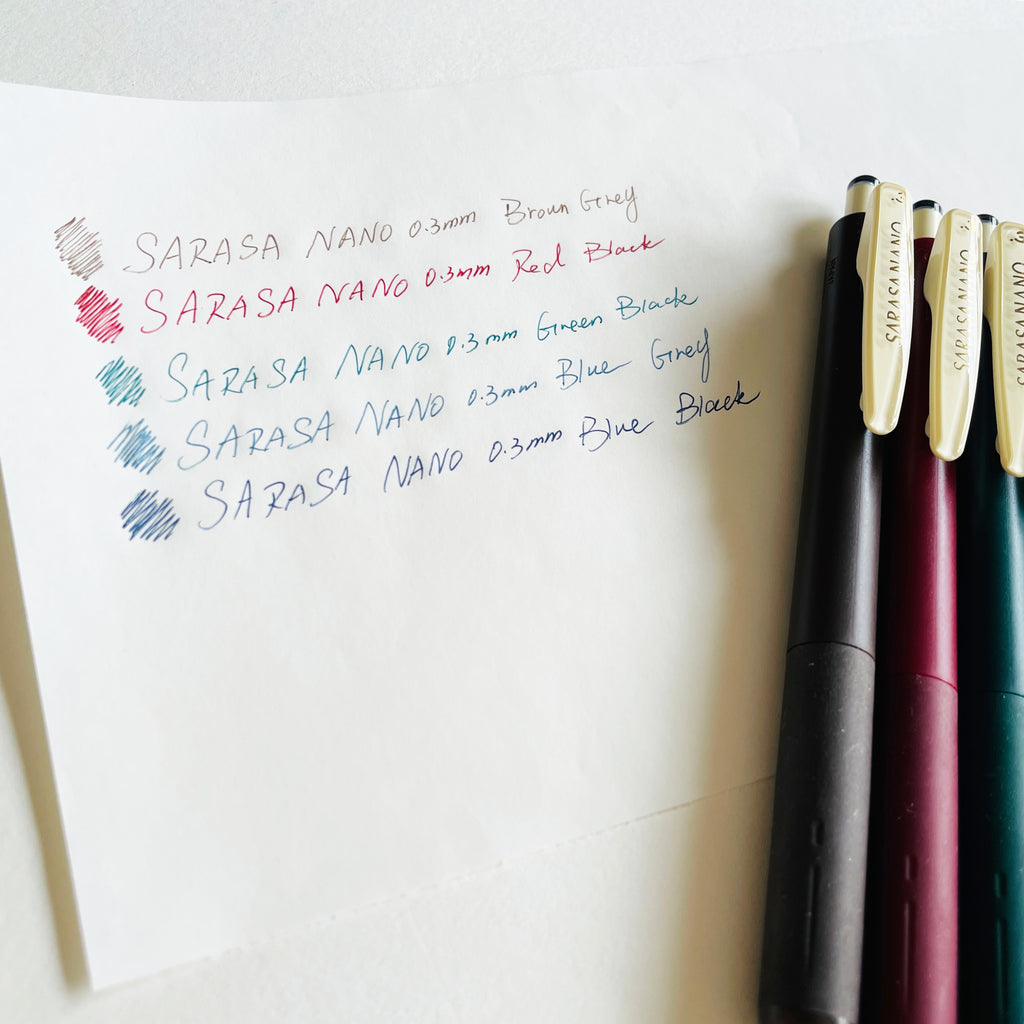 SARASA NANO 0.3mm Brown Grey
SARASA NANO 0.3mm Red Black
SARASA NANO 0.3mm Green Black
SARASA NANO 0.3mm Blue Grey
SARASA NANO 0.3mm Blue Black
SARASA NANO
SARASA NANO
SARASA NANO